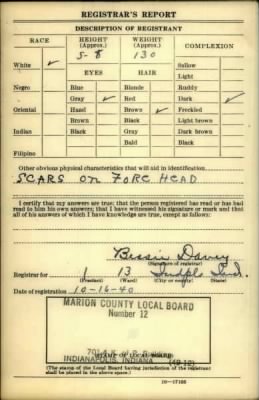 REGISTRAR'S REPORT
DESCRIPTION OF REGISTRANT
RACE
HEIGHT (Approx.)
WEIGHT (Approx.)
COMPLEXION
5-8
130
White ✓
Sallow
EYES
HAIR
Light
Negro
Blue
Blonde
Ruddy
Gray ✓
Red
Dark ✓
Oriental
Hazel
Brown ✓
Freckled
Brown
Black
Light brown
Indian
Black
Gray
Dark brown
Bald
Black
Filipino
Other obvious physical characteristics that will aid in identification
SCARS on FORE HEAD
I certify that my answers are true; that the person registered has read or has had read to him his own answers; that I have witnessed his signature or mark and that all of his answers of which I have knowledge are true, except as follows:
Bessie Davey
(Signature of registrar)
Registrar for 1 13 Indpls Ind.
(Precinct) (Ward) (City or county) (State)
Date of registration 10-16-40
MARION COUNTY LOCAL BOARD
Number 12
INDIANAPOLIS, INDIANA
(STAMP OF LOCAL BOARD)
(The stamp of the Local Board having jurisdiction of the registrant shall be placed in the above space.)